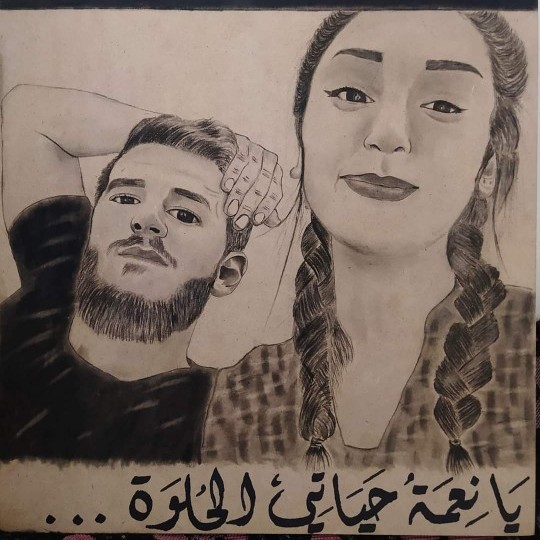 يَا نِعمَةُ حَيَاتِيْ الحُلوَة ...